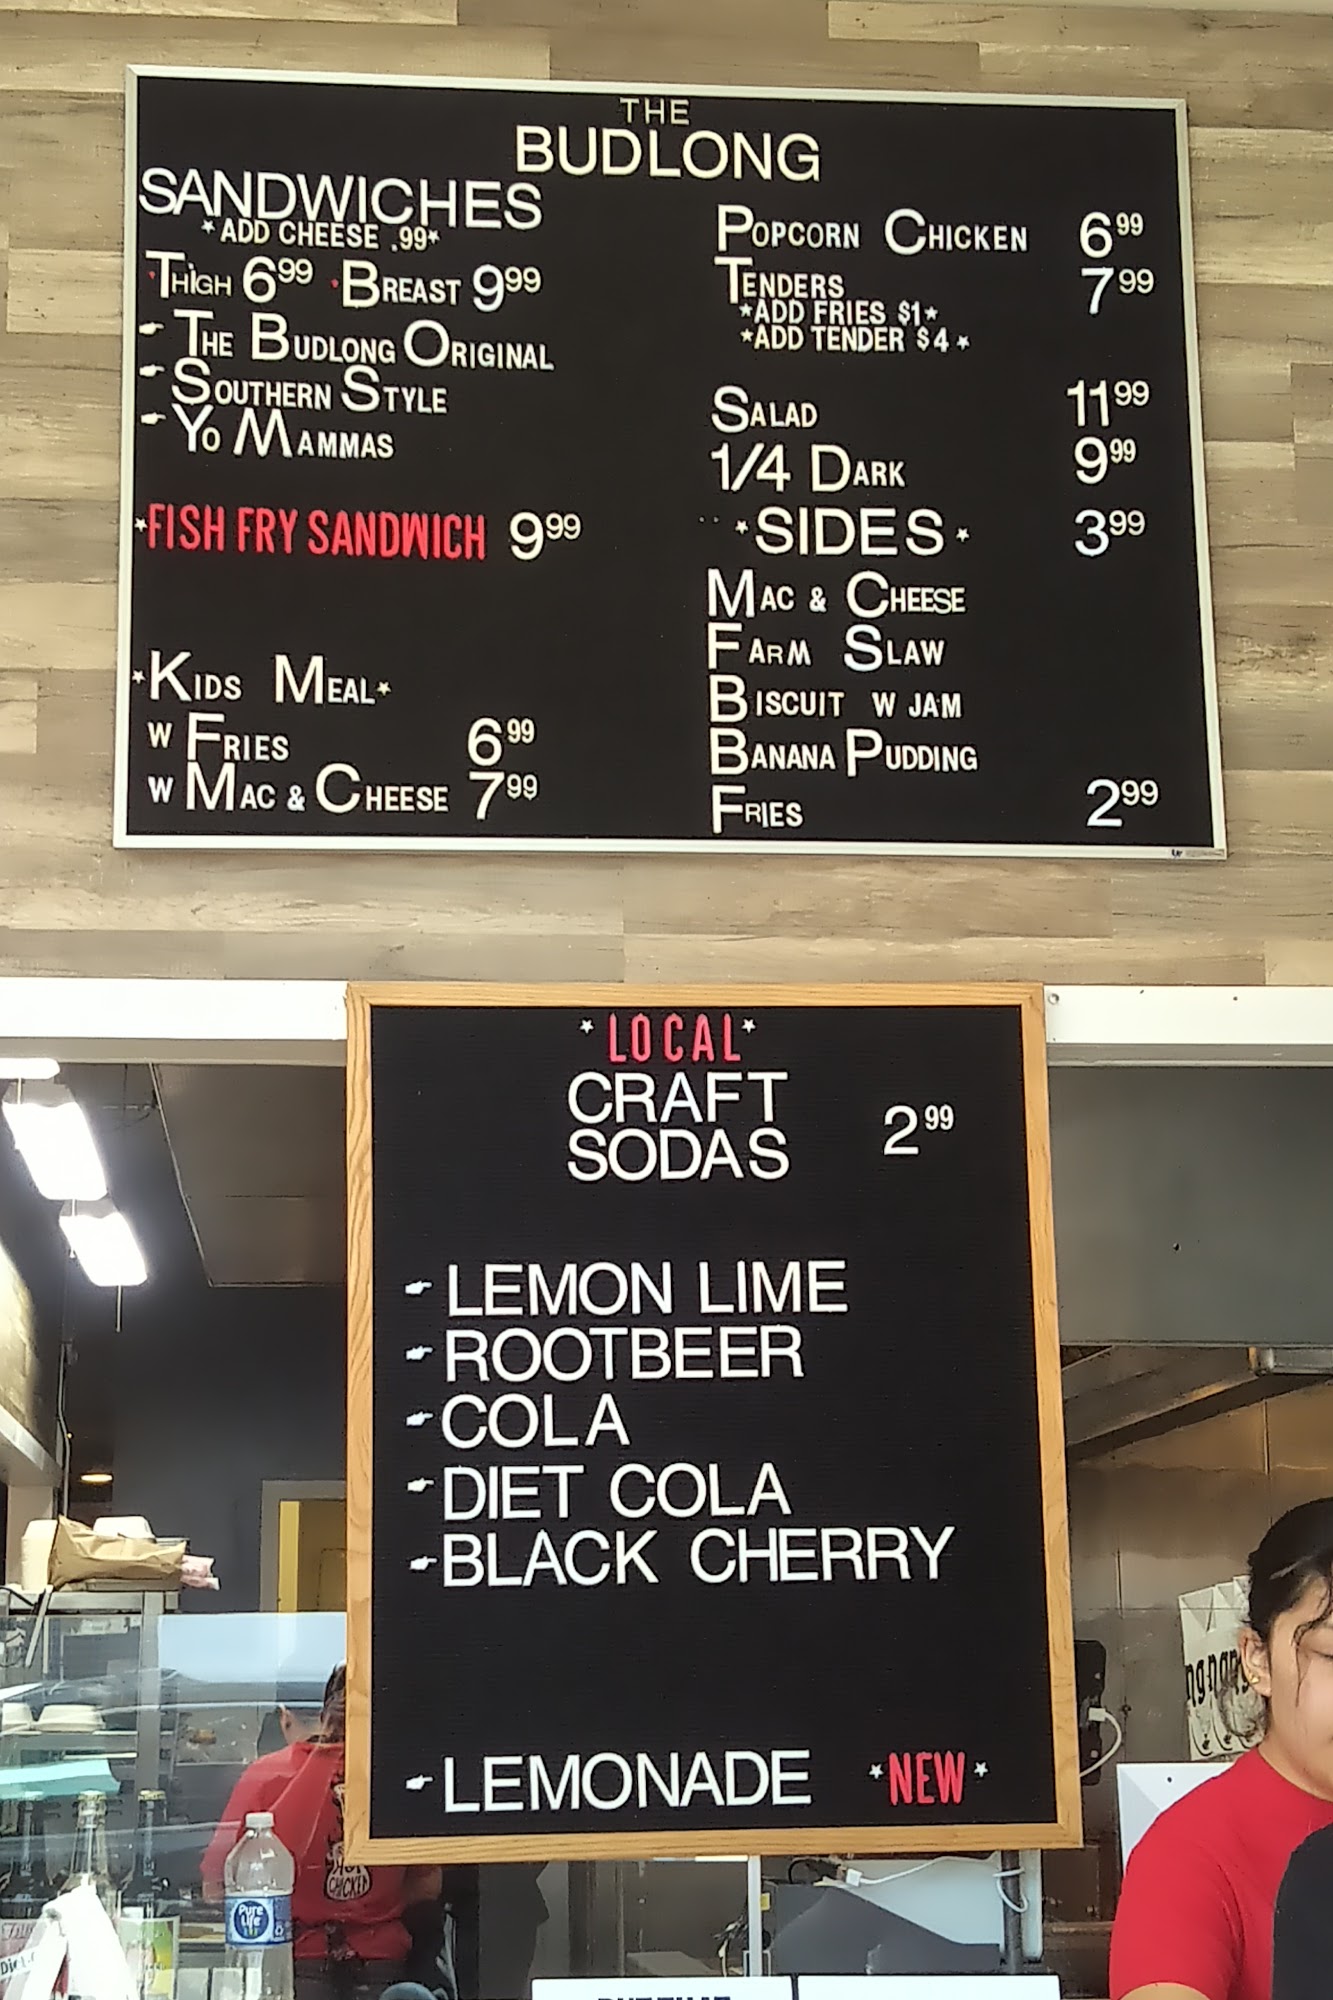 THE
BUDLONG
SANDWICHES
*ADD CHEESE .99*
THiGH 6.99 · BREAST 9.99
THE BUDLONG ORIGINAL
SOUTHERN STYLE
YO MAMMAS
*FISH FRY SANDWICH 9.99
*KIDS MEAL*
W FRIES 6.99
W MAC & CHEESE 7.99
POPCORN CHICKEN 6.99
TENDERS 7.99
*ADD FRIES $1*
*ADD TENDER $4*
SALAD 11.99
1/4 DARK 9.99
*SIDES* 3.99
MAC & CHEESE
FARM SLAW
BISCUIT W JAM
BANANA PUDDING
FRIES 2.99
*LOCAL*
CRAFT
SODAS 2.99
LEMON LIME
ROOTBEER
COLA
DIET COLA
BLACK CHERRY
LEMONADE *NEW*
CHICKEN
Pure
Life